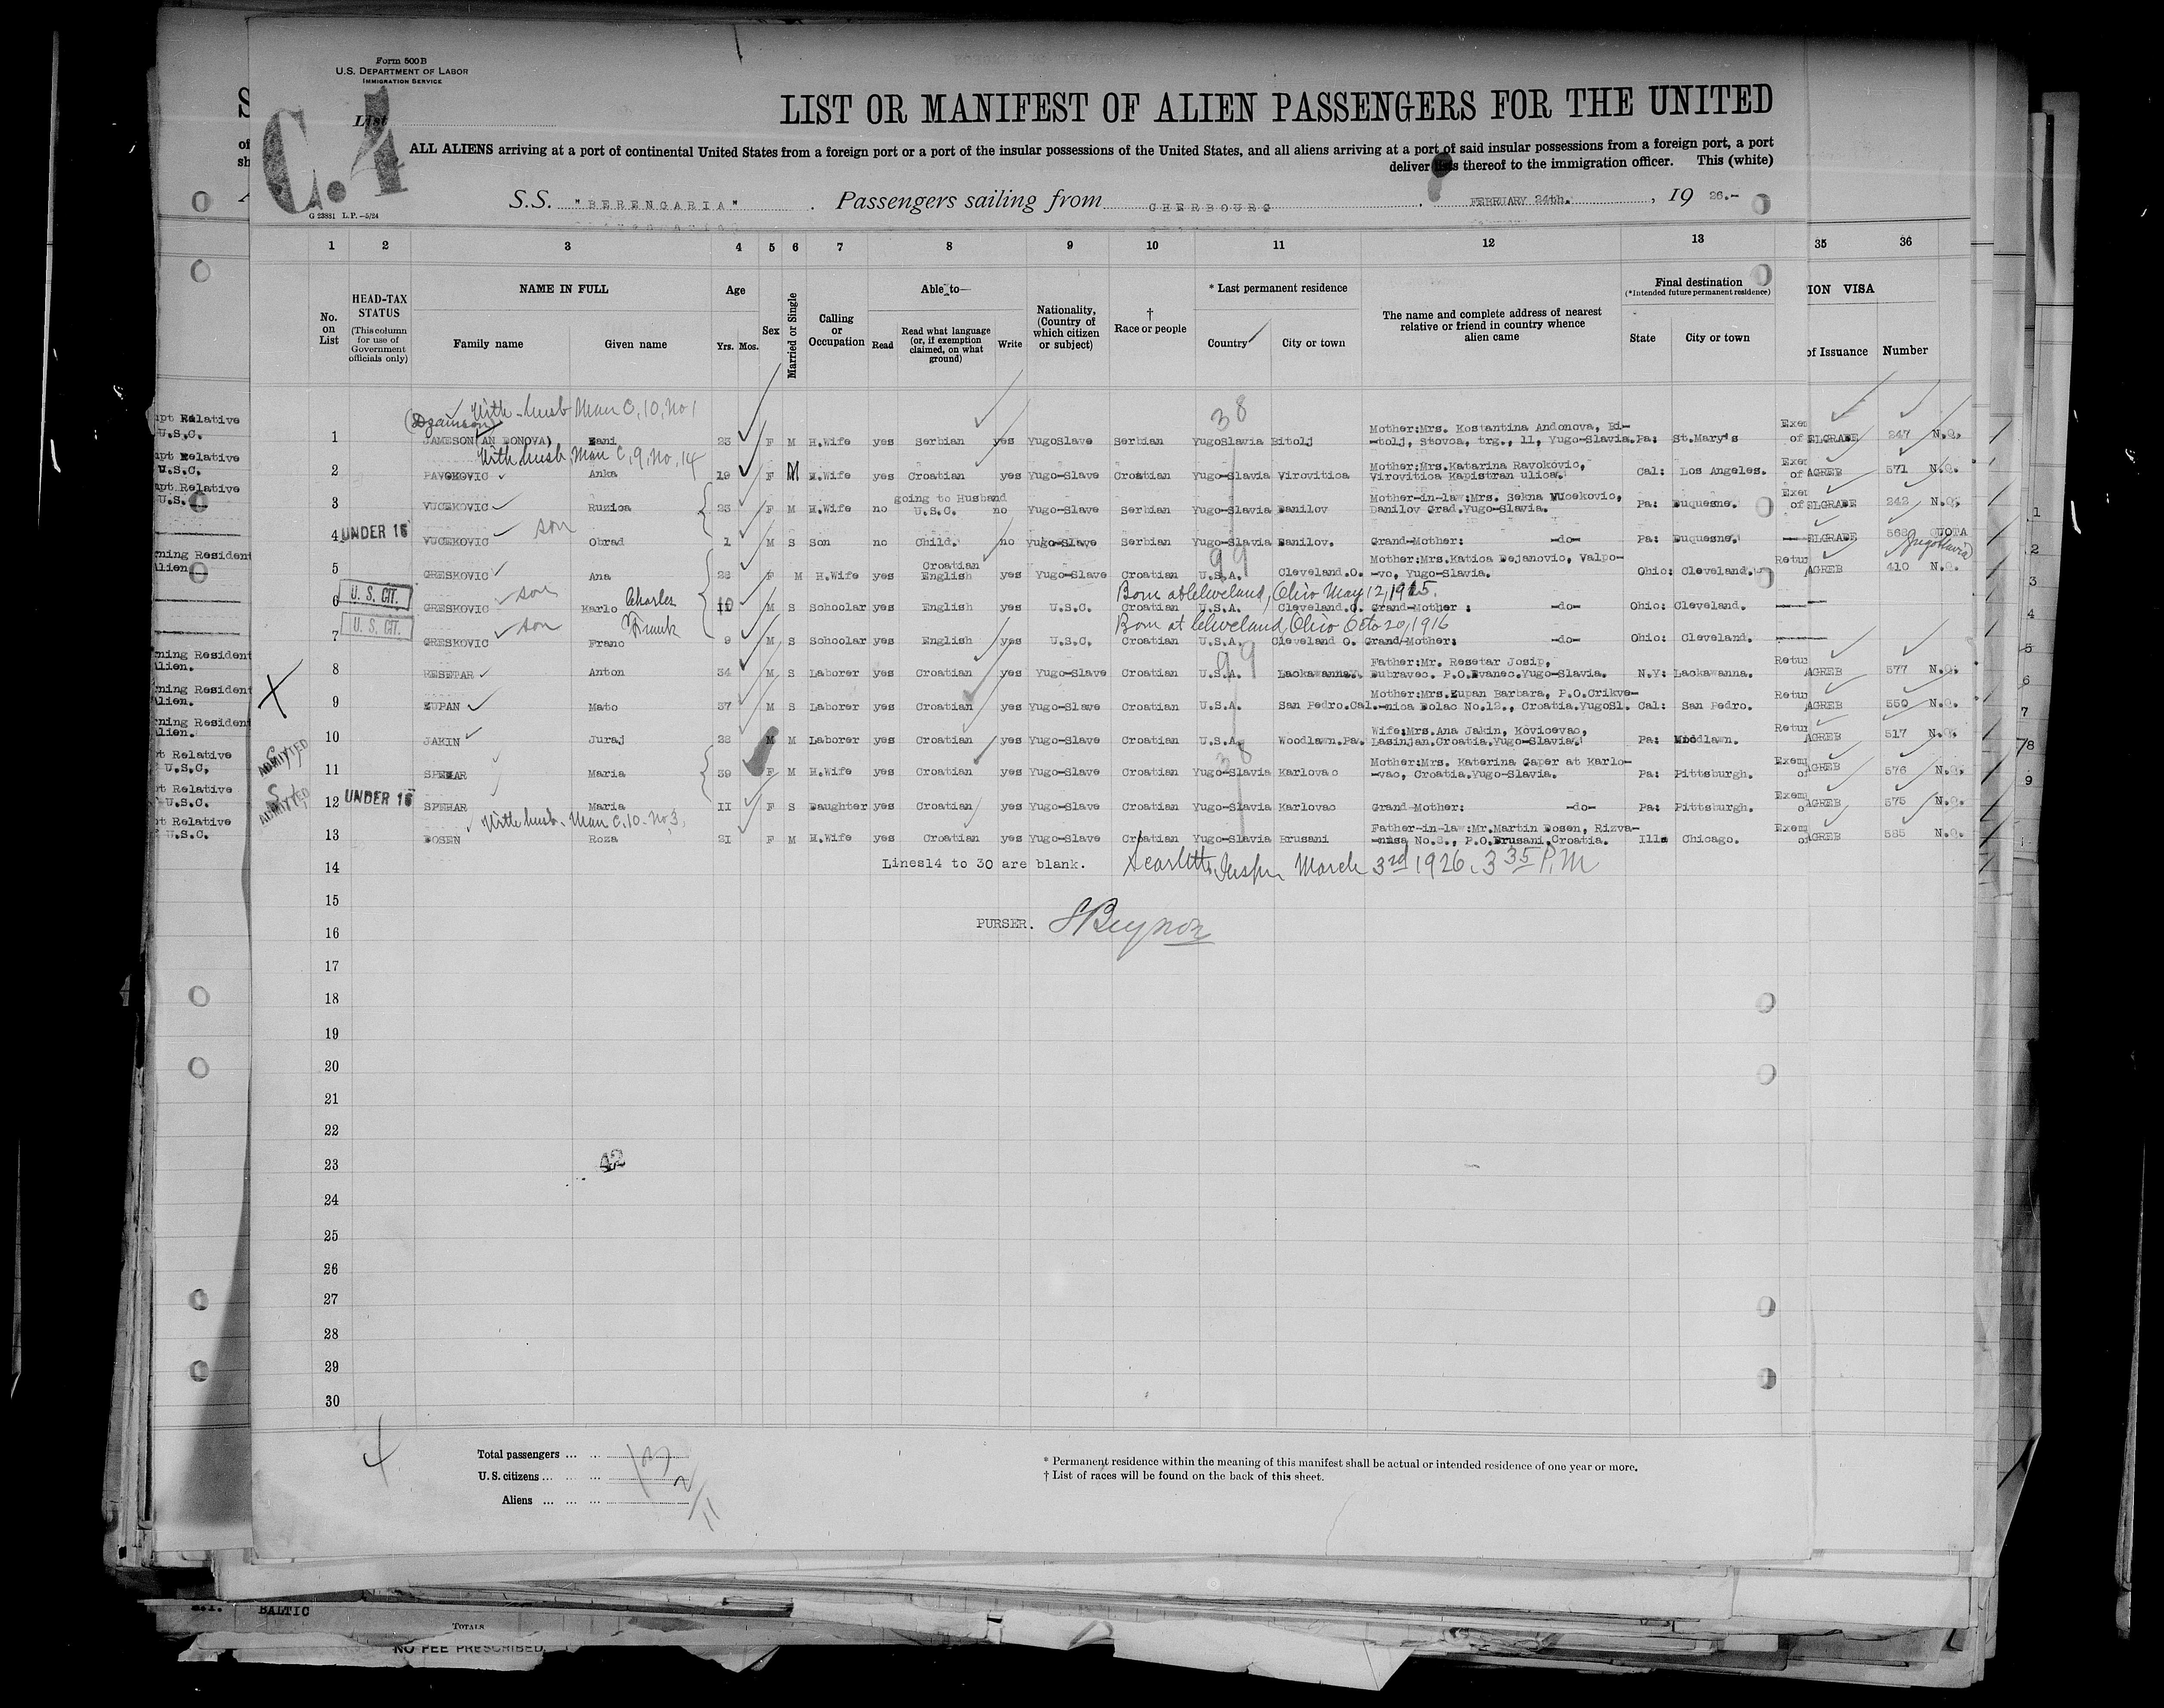 Form 500 B
U.S. DEPARTMENT OF LABOR
IMMIGRATION SERVICE
List
C.4
LIST OR MANIFEST OF ALIEN PASSENGERS FOR THE UNITED
ALL ALIENS arriving at a port of continental United States from a foreign port or a port of the insular possessions of the United States, and all aliens arriving at a port of said insular possessions from a foreign port, a port
deliver lists thereof to the immigration officer. This (white)
S.S. "BERENGARIA". Passengers sailing from CHERBOURG, FEBRUARY 24th., 19 26.-
G 23851 L.P.—5/24
1 2 3 4 5 6 7 8 9 10 11 12 13 35 36
No. on List
HEAD-TAX STATUS
(This column for use of Government officials only)
NAME IN FULL
Family name Given name
Age
Yrs. Mos.
Sex
Married or Single
Calling or Occupation
Able to—
Read
Read what language (or, if exemption claimed, on what ground)
Write
Nationality, (Country of which citizen or subject)
† Race or people
* Last permanent residence
Country City or town
The name and complete address of nearest relative or friend in country whence alien came
Final destination
(*Intended future permanent residence)
State City or town
ION VISA
of Issuance Number
With husb Man C, 10, No 1
(Dzamson)
38
1 JAMESON(AN DONOVA) Zani 23 F M H.Wife yes Serbian yes YugoSlave Serbian YugoSlavia Bitolj Mother:Mrs. Kostantina Andonova, Bi-
-tolj, Stovoa, trg., 11, Yugo-Slavia. Pa: St.Mary's Exem of ELGRADE 247 N.Q.
With husb, Man C, 9, No, 14
2 PAVOKOVIC Anka 19 F M H.Wife yes Croatian yes Yugo-Slave Croatian Yugo-Slavia Virovitica Mother:Mrs.Katarina Ravokovic,
Virovitica Kapistran ulica. Cal: Los Angeles. Exem of AGREB 571 N.Q.
3 VUCEKOVIC Ruzica 23 F M H.Wife no going to Husband U.S.C. no Yugo-Slave Serbian Yugo-Slavia Danilov Mother-in-law:Mrs. Sekna Vucekovic,
Danilov Grad.Yugo-Slavia. Pa: Duquesne. Exem of ELGRADE 242 N.Q.
UNDER 16
son
4 VUCEKOVIC Obrad 1 M S Son no Child. no Yugo-Slave Serbian Yugo-Slavia Danilov. Grand-Mother: -do- Pa: Duquesne. ELGRADE QUOTA
Yugoslavia
99
5 GRESKOVIC Ana 28 F M H.Wife yes Croatian English yes Yugo-Slave Croatian U.S.A. Cleveland.O. Mother:Mrs.Katica Dejanovic, Valpo-
-vo, Yugo-Slavia. Ohio: Cleveland. Retur AGREB 410 N.Q.
U. S. CIT.
son
Charles
Born at Cleveland, Ohio May 12, 1915.
6 GRESKOVIC Karlo 10 M S Schoolar yes English yes U.S.C. Croatian U.S.A. Cleveland.O. Grand-Mother : -do- Ohio: Cleveland.
U. S. CIT.
son
Frank
Born at Cleveland, Ohio Octo 20, 1916
7 GRESKOVIC Franc 9 M S Schoolar yes English yes U.S.C. Croatian U.S.A. Cleveland O. Grand-Mother: -do- Ohio: Cleveland.
99
8 RESETAR Anton 34 M S Laborer yes Croatian yes Yugo-Slave Croatian U.S.A. Lackawanna. Father:Mr. Resetar Josip,
Dubravec. P.O.Bvanec.Yugo-Slavia. N.Y: Lackawanna. Retur AGREB 577 N.Q.
X
9 ZUPAN Mato 37 M S Laborer yes Croatian yes Yugo-Slave Croatian U.S.A. San Pedro.Cal. Mother:Mrs.Zupan Barbara, P.O.Crikve-
-nica Dolac No.12., Croatia.YugoSl. Cal: San Pedro. Retur AGREB 550 N.Q.
10 JAKIN Juraj 28 M M Laborer yes Croatian yes Yugo-Slave Croatian U.S.A. Woodlawn.Pa. Wife:Mrs.Ana Jakin, Kovicevac,
Lasinjan.Croatia.Yugo-Slavia. Pa: Woodlawn. Retur AGREB 517 N.Q.
ADMITTED
38
11 SPEHAR Maria 39 F M H.Wife yes Croatian yes Yugo-Slave Croatian Yugo-Slavia Karlovac Mother:Mrs. Katerina Gaper at Karlo-
-vac, Croatia.Yugo-Slavia. Pa: Pittsburgh. Exem of AGREB 576 N.Q.
ADMITTED
UNDER 16
12 SPEHAR Maria II F S Daughter yes Croatian yes Yugo-Slave Croatian Yugo-Slavia Karlovac Grand-Mother: -do- Pa: Pittsburgh. Exem of AGREB 575 N.Q.
With husb. Man C. 10. No 3,
13 DOSEN Roza 21 F M H.Wife yes Croatian yes Yugo-Slave Croatian Yugo-Slavia Brusani Father-in-law:Mr.Martin Dosen, Rizva-
-nisa No.8., P.O.Brusani.Croatia. Ill: Chicago. Exem of AGREB 585 N.Q.
14 Lines14 to 30 are blank. March 3rd 1926. 3 35 P.M
15
PURSER.
16
17
18
19
20
21
22
23
42
24
25
26
27
28
29
30
Total passengers ... ... 13
U. S. citizens ... ... ... 2
Aliens ... ... ... 11
* Permanent residence within the meaning of this manifest shall be actual or intended residence of one year or more.
† List of races will be found on the back of this sheet.
BALTIC
TOTALS
NO FEE PRESCRIBED